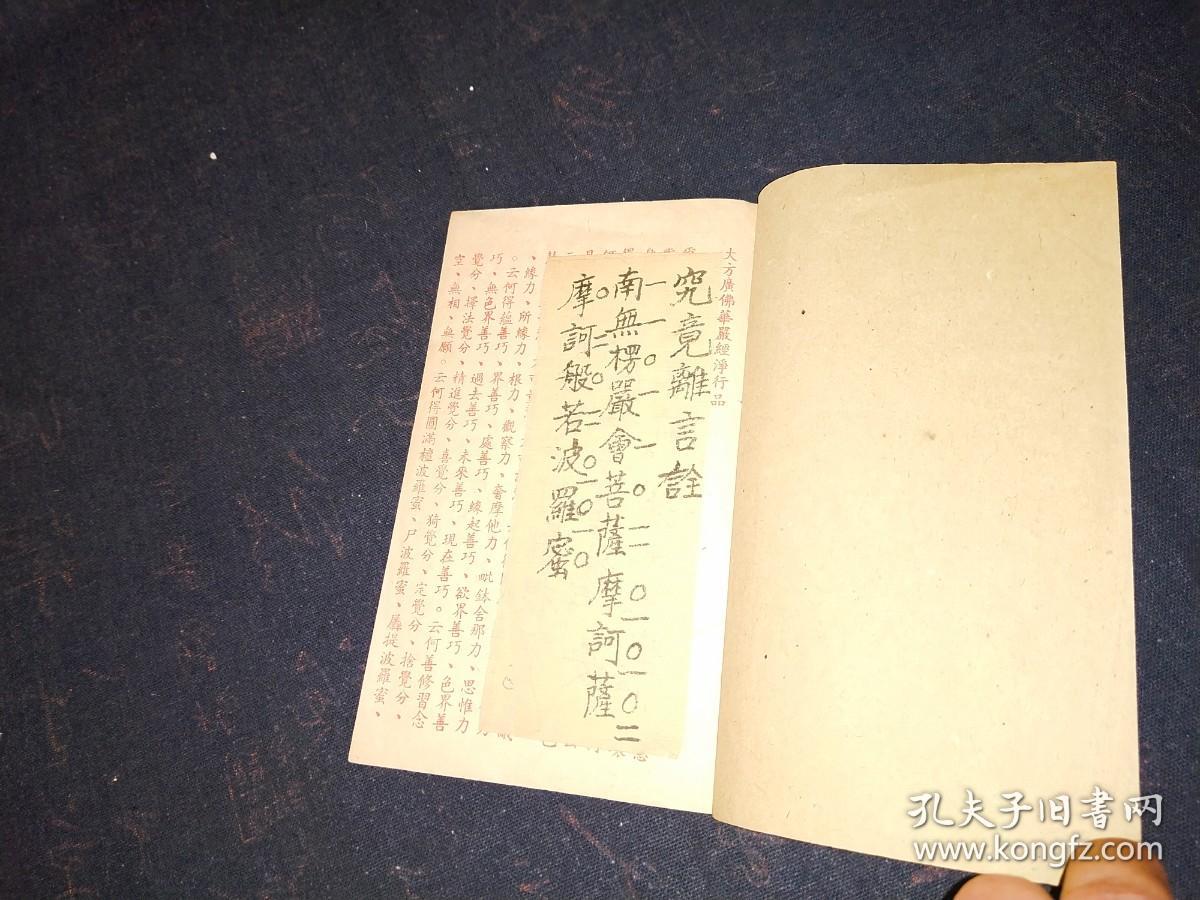 究竟離言詮
南無楞嚴會菩薩摩訶薩
摩訶般若波羅蜜
大方廣佛華嚴經淨行品
、緣力、所緣力、根力、觀察力、奢摩他力、毗鉢舍那力、思惟力
。云何得蘊善巧、界善巧、處善巧、緣起善巧、欲界善巧、色界善
巧、無色界善巧、過去善巧、未來善巧、現在善巧。云何善修習念
覺分、擇法覺分、精進覺分、喜覺分、猗覺分、定覺分、捨覺分、
空、無相、無願。云何得圓滿檀波羅蜜、尸波羅蜜、羼提波羅蜜、
孔夫子旧书网
www.kongfz.com